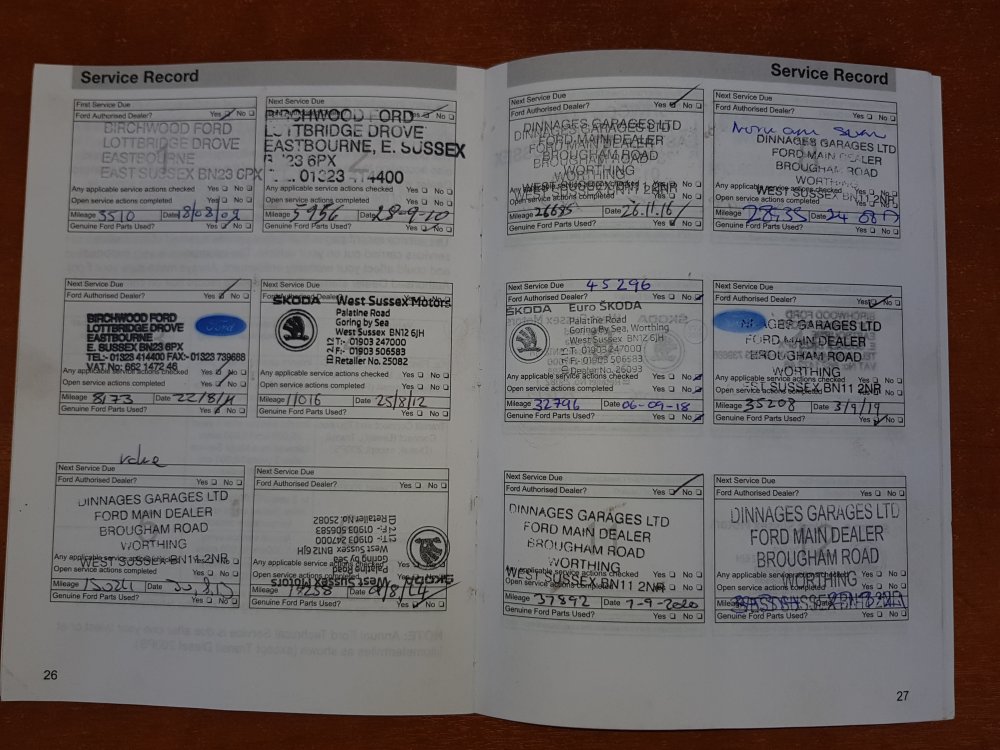 Service Record
First Service Due
Ford Authorised Dealer? Yes No
BIRCHWOOD FORD
LOTTBRIDGE DROVE
EASTBOURNE
EAST SUSSEX BN23 6PX
Any applicable service actions checked Yes No
Open service actions completed Yes No
Mileage 3510 Date
Genuine Ford Parts Used? Yes No
Next Service Due
Yes No
BIRCHWOOD FORD
LOTTBRIDGE DROVE
EASTBOURNE, E. SUSSEX
BN23 6PX
01323 414400
Any applicable service actions checked Yes No
Open service actions completed Yes No
Mileage 5956 Date 28-9-10
Genuine Ford Parts Used? Yes No
Next Service Due
Ford Authorised Dealer? Yes No
BIRCHWOOD FORD
LOTTBRIDGE DROVE
EASTBOURNE
E. SUSSEX BN23 6PX
TEL:- 01323 414400 FAX:- 01323 739688
VAT No: 662 1472 46
Ford
Any applicable service actions checked Yes No
Open service actions completed Yes No
Mileage 8173 Date 22/8/11
Genuine Ford Parts Used? Yes No
Next Service Due
Ford Authorised Dealer? Yes No
ŠKODA West Sussex Motors
Palatine Road
Goring by Sea
West Sussex BN12 6JH
T:- 01903 247000
F:- 01903 506583
Retailer No. 25082
ID 2.12
Any applicable service actions checked Yes No
Open service actions completed Yes No
Mileage 11016 Date 25/8/12
Genuine Ford Parts Used? Yes No
Next Service Due
Ford Authorised Dealer? Yes No
DINNAGES GARAGES LTD
FORD MAIN DEALER
BROUGHAM ROAD
WORTHING
WEST SUSSEX BN11 2NR
Any applicable service actions checked Yes No
Open service actions completed Yes No
Mileage Date
Genuine Ford Parts Used? Yes No
Next Service Due
Ford Authorised Dealer? Yes No
ŠKODA West Sussex Motors
Palatine Road
Goring by Sea
West Sussex BN12 6JH
T:- 01903 247000
F:- 01903 506583
Retailer No. 25082
ID 2.12
Any applicable service actions checked Yes No
Open service actions completed Yes No
Mileage 17258 Date
Genuine Ford Parts Used? Yes No
26
Service Record
Next Service Due
Ford Authorised Dealer? Yes No
DINNAGES GARAGES LTD
FORD MAIN DEALER
BROUGHAM ROAD
WORTHING
WEST SUSSEX BN11 2NR
Any applicable service actions checked Yes No
Open service actions completed Yes No
Mileage 26685 Date 26.11.16
Genuine Ford Parts Used? Yes No
Next Service Due
Ford Authorised Dealer? Yes No
DINNAGES GARAGES LTD
FORD MAIN DEALER
BROUGHAM ROAD
WORTHING
WEST SUSSEX BN11 2NR
Any applicable service actions checked Yes No
Open service actions completed Yes No
Mileage Date
Genuine Ford Parts Used? Yes No
45296
Next Service Due
Ford Authorised Dealer? Yes No
ŠKODA Euro ŠKODA
Palatine Road
Goring By Sea, Worthing
West Sussex BN12 6JH
T:- 01903 247000
F:- 01903 506583
Dealer No. 26093
Any applicable service actions checked Yes No
Open service actions completed Yes No
Mileage 32796 Date 06-09-18
Genuine Ford Parts Used? Yes No
Next Service Due
Ford Authorised Dealer? Yes No
DINNAGES GARAGES LTD
FORD MAIN DEALER
BROUGHAM ROAD
WORTHING
WEST SUSSEX BN11 2NR
Any applicable service actions checked Yes No
Open service actions completed Yes No
Mileage 35208 Date 3/9/19
Genuine Ford Parts Used? Yes No
Next Service Due
Ford Authorised Dealer? Yes No
DINNAGES GARAGES LTD
FORD MAIN DEALER
BROUGHAM ROAD
WORTHING
WEST SUSSEX BN11 2NR
Any applicable service actions checked Yes No
Open service actions completed Yes No
Mileage 37892 Date 7-9-2020
Genuine Ford Parts Used? Yes No
Next Service Due
Ford Authorised Dealer? Yes No
DINNAGES GARAGES LTD
FORD MAIN DEALER
BROUGHAM ROAD
WORTHING
Any applicable service actions checked Yes No
Open service actions completed Yes No
Mileage
Genuine Ford Parts Used? Yes No
27